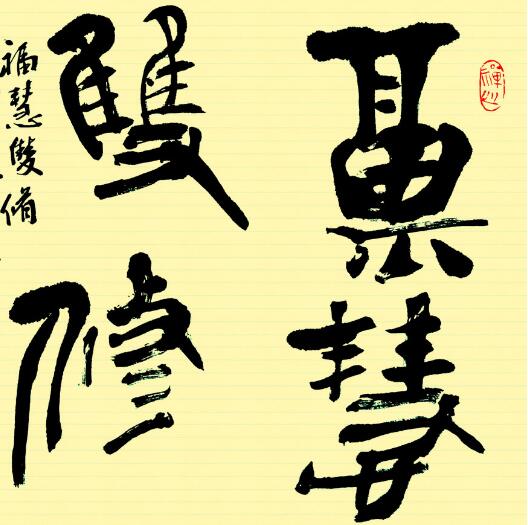 福慧
雙修
福慧雙脩